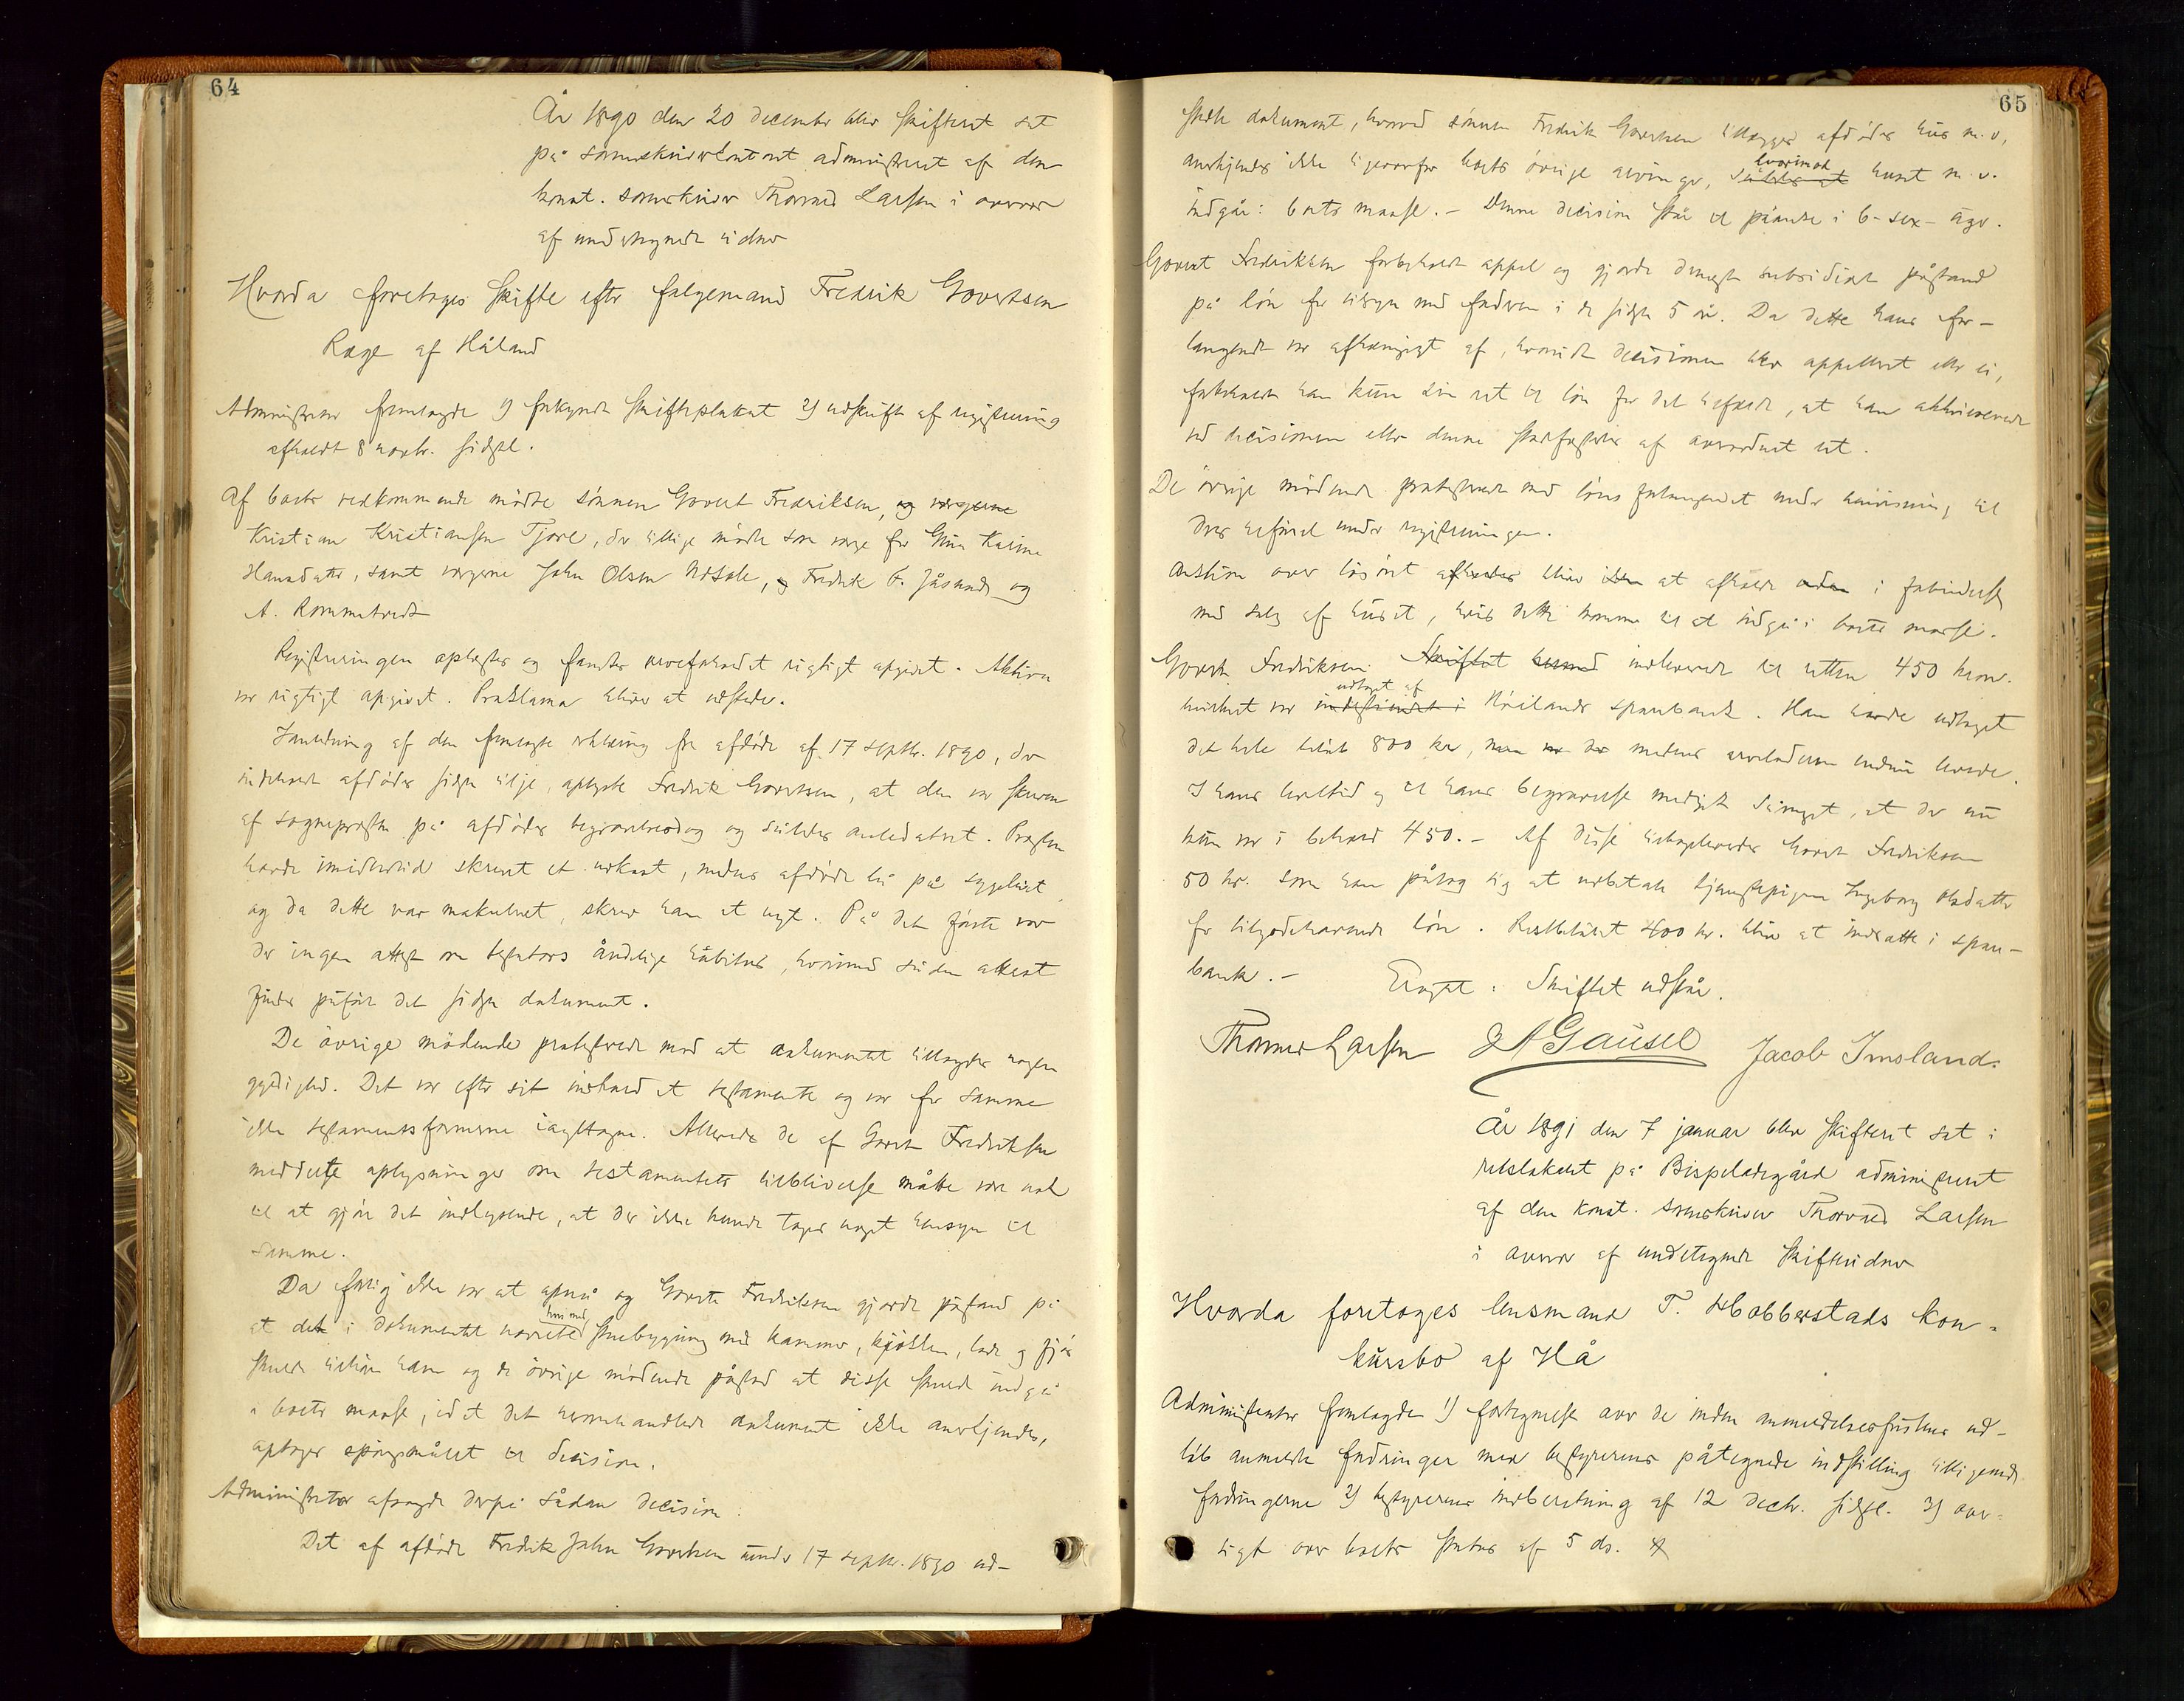 64
År 1890 den 20 december blev skifteret sat
på sorenskriverkontoret administreret af den
konst. sorenskriver Thorvald Larsen i overvær
af undertegnede vidner
Hvorda foretoges skifte efter følgemand Fredrik Govertsen
Ræge af Håland
Administrator fremlagde 1) forkyndt skifteplakat 2) udskrift af registrering
afholdt 8 novbr. sidstl.
Af boets vedkommende mødte sønnen Govert Fredriksen, og værgerne
Kristian Kristiansen Tjore, der tillige mødte som værge for Karine
Hansdatter, samt værgerne John Olsen, og Fredrik G. Jåsund og
A. Rommetvedt
Registreringen oplæstes og fandtes arveforholdet rigtigt opgivet. Aktiva
var rigtigt opgivet. Proklama bliver at udstede.
I anledning af den fremlagte erklæring fra afdøde af 17 septbr. 1890, der
indeholdt afdødes sidste vilje, oplyste Fredrik Govertsen, at den var skreven
af sognepresten på afdødes begravelsesdag og således antedateret. Presten
havde imidlertid skrevet et udkast, medens afdøde lå på sygeleiet,
og da dette var makuleret, skrev han et nyt. På det første var
der ingen attest om testators åndelige habitus, hvorimod sådan attest
findes påført det sidste dokument.
De øvrige mødende protesterede mod at dokumentet tillagdes nogen
gyldighed. Det var efter sit indhold et testamente og var for samme
ikke testamentsformerne iagttagne. Allerede de af Govert Fredriksen
meddelte oplysninger om testamentets tilblivelse måtte være nok
til at gjøre det indlysende, at der ikke kunde tages noget hensyn til
samme.
Da forlig ikke var at opnå og Govert Fredriksen gjorde påstand på
at det i dokumentet nævnte hus med stuebygning med kammer, kjøkken, lade og fjøs
skulde tilhøre ham og de øvrige mødende påstod at disse skulde indgå
i boets masse, idet det heromhandlede dokument ikke anerkjendes,
optoges spørgsmålet til decision.
Administrator afsagde derpå sådan decision:
Det af afdøde Fredrik John Govertsen under 17 septbr. 1890 ud-
65
stedte dokument, hvorved sønnen Fredrik Govertsen tillægges afdødes hus m.v,
anerkjendes ikke ligeoverfor boets øvrige arvinger, således at hvorimod huset m.v.
indgår i boets masse. - Denne decision står til påanke i 6 - sex - uger.
Govert Fredriksen forbeholdt appel og gjorde dernæst subsidiært påstand
på løn for tilsyn med faderen i de sidste 5 år. Da dette hans for-
langende var afhængigt af, hvorvidt decisionen blev appelleret eller ei,
forbeholdt han kun sin ret til løn for det tilfælde, at han akkviescerede
ved decisionen eller denne stadfæstedes af overordnet ret.
De øvrige mødende protesterede mod lønsforlangendet under henvisning til
deres tilførsel under registreringen.
Auktion over løsøret afholdes bliver at afholde i forbindelse
med salg af huset, hvis dette kommer til at indgå i boets masse.
Govert Fredriksen indleverede til retten 450 kron.
hvilket var indestående i udtaget af Høilands sparebank. Han havde udtaget
det hele beløb 800 kr, medens arveladeren endnu levede.
I hans levetid og til hans begravelse medgik såmeget, at der nu
kun var i behold 450. - Af disse tilbageleveredes Govert Fredriksen
50 kr. som han påtog sig at udbetale tjenestepigen Ingeborg Olsdatter
for tilgodehavende løn. Restbeløbet 400 kr. bliver at indsætte i spare-
bank. -
Oplæst. Skiftet udstår.
Thorvald Larsen JA Gausel Jacob Imsland.
År 1891 den 7 januar blev skifteret sat i
retslokalet på Bispeladegård administreret
af den konst. sorenskriver Thorvald Larsen
i overvær af undertegnede skiftevidner
Hvorda foretoges lensmand T. Hobberstads kon-
kursbo af Hå
Administrator fremlagde 1) fortegnelse over de inden anmeldelsesfristens ud-
løb anmeldte fordringer med bestyrerens påtegnede indstilling tilligemed
fordringerne 2) bestyrerens indberetning af 12 decbr. sidstl. 3) over-
sigt over boets status af 5 ds.